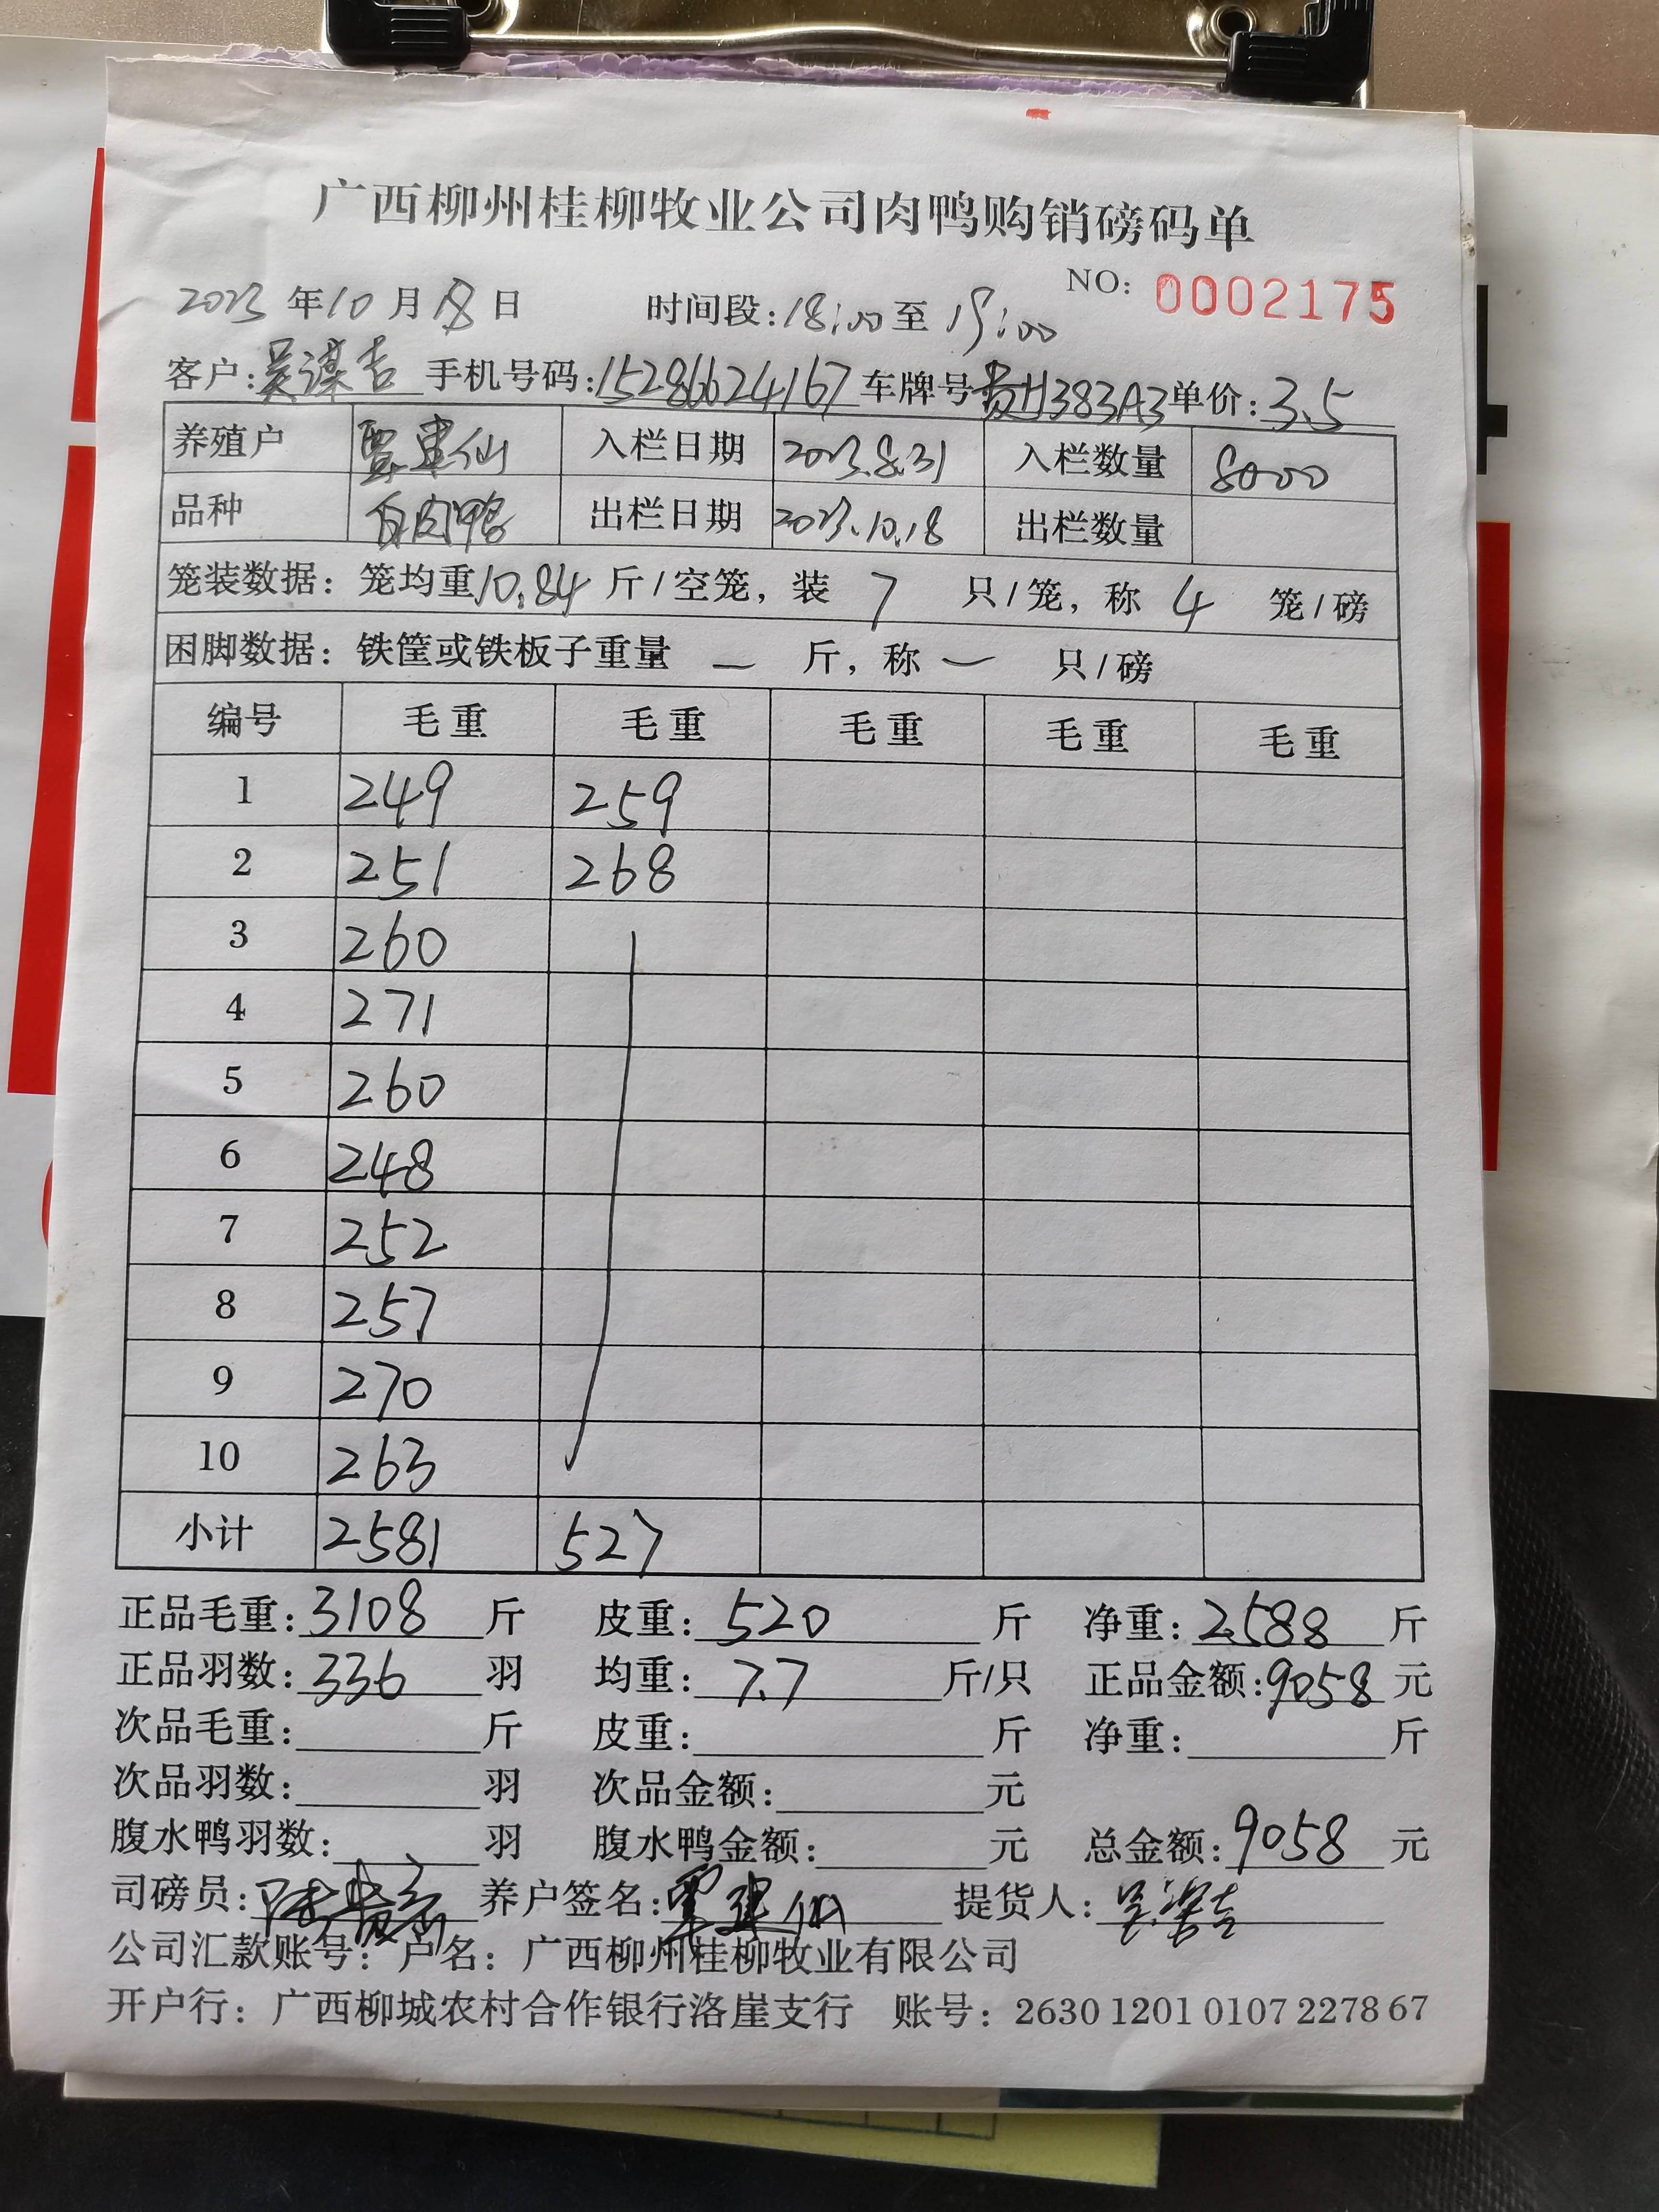 广西柳州桂柳牧业公司肉鸭购销磅码单
NO: 0002175
2023年10月18日 时间段:18:00至19:00
客户:吴谋吉 手机号码:15286624167 车牌号贵H383A3 单价:3.5
养殖户 覃建仙 入栏日期 2023.8.31 入栏数量 8000
品种 白肉鸭 出栏日期 2023.10.18 出栏数量
笼装数据: 笼均重10.84斤/空笼,装 7 只/笼,称 4 笼/磅
困脚数据: 铁筐或铁板子重量 — 斤,称 — 只/磅
编号 毛重 毛重 毛重 毛重 毛重
1 249 259
2 251 268
3 260
4 271
5 260
6 248
7 252
8 257
9 270
10 263
小计 2581 527
正品毛重:3108斤 皮重:520斤 净重:2588斤
正品羽数:336羽 均重:7.7斤/只 正品金额:9058元
次品毛重:斤 皮重:斤 净重:斤
次品羽数:羽 次品金额:元
腹水鸭羽数:羽 腹水鸭金额:元 总金额:9058元
司磅员: 养户签名:覃建仙 提货人:吴谋吉
公司汇款账号: 户名: 广西柳州桂柳牧业有限公司
开户行: 广西柳城农村合作银行洛崖支行 账号: 2630 1201 0107 2278 67